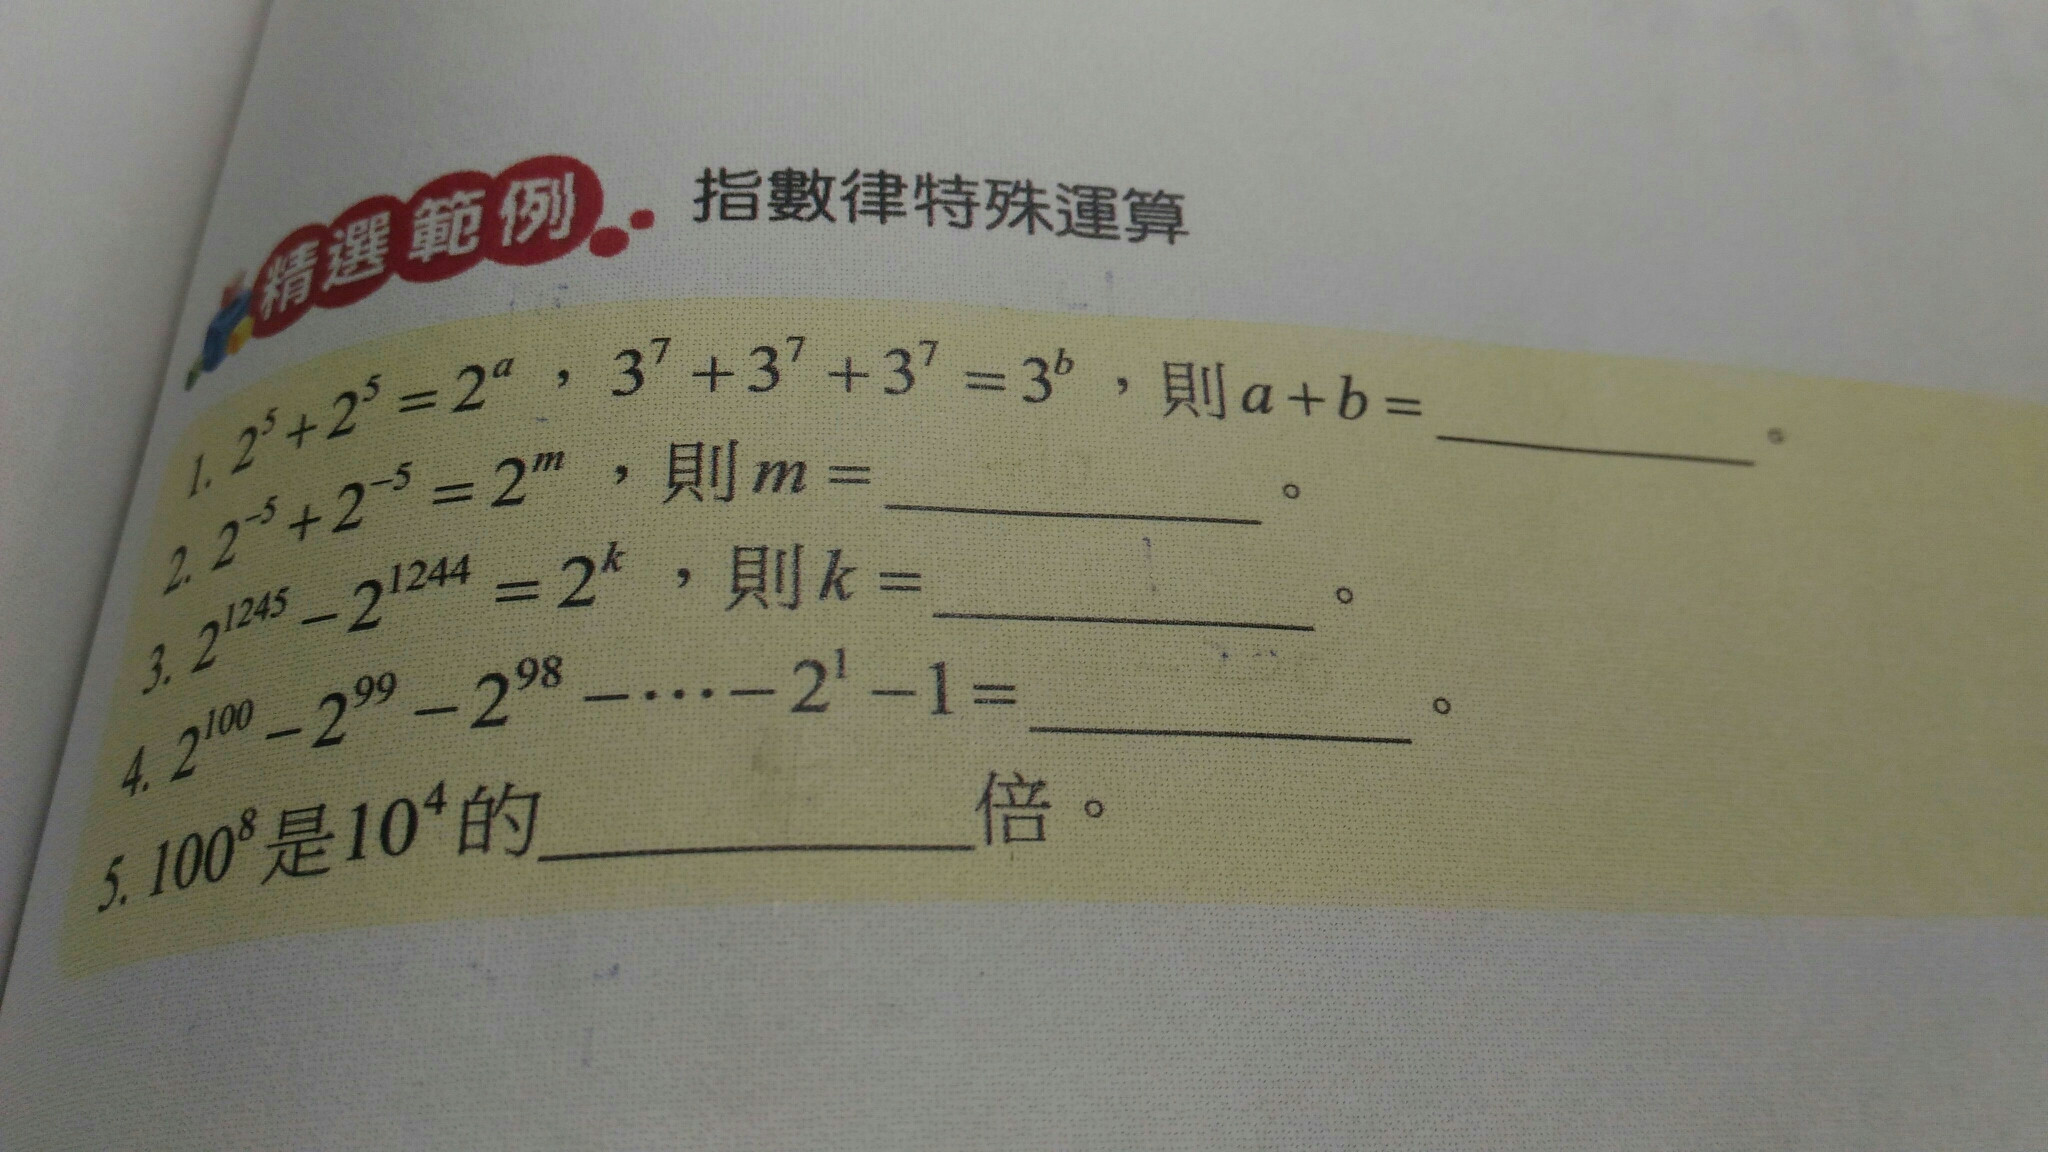 精選範例 指數律特殊運算
1. 2⁵+2⁵=2ᵃ，3⁷+3⁷+3⁷=3ᵇ，則a+b=________。
2. 2⁻⁵+2⁻⁵=2ᵐ，則m=________。
3. 2¹²⁴⁵−2¹²⁴⁴=2ᵏ，則k=________。
4. 2¹⁰⁰−2⁹⁹−2⁹⁸−⋯−2¹−1=________。
5. 100⁸是10⁴的________倍。